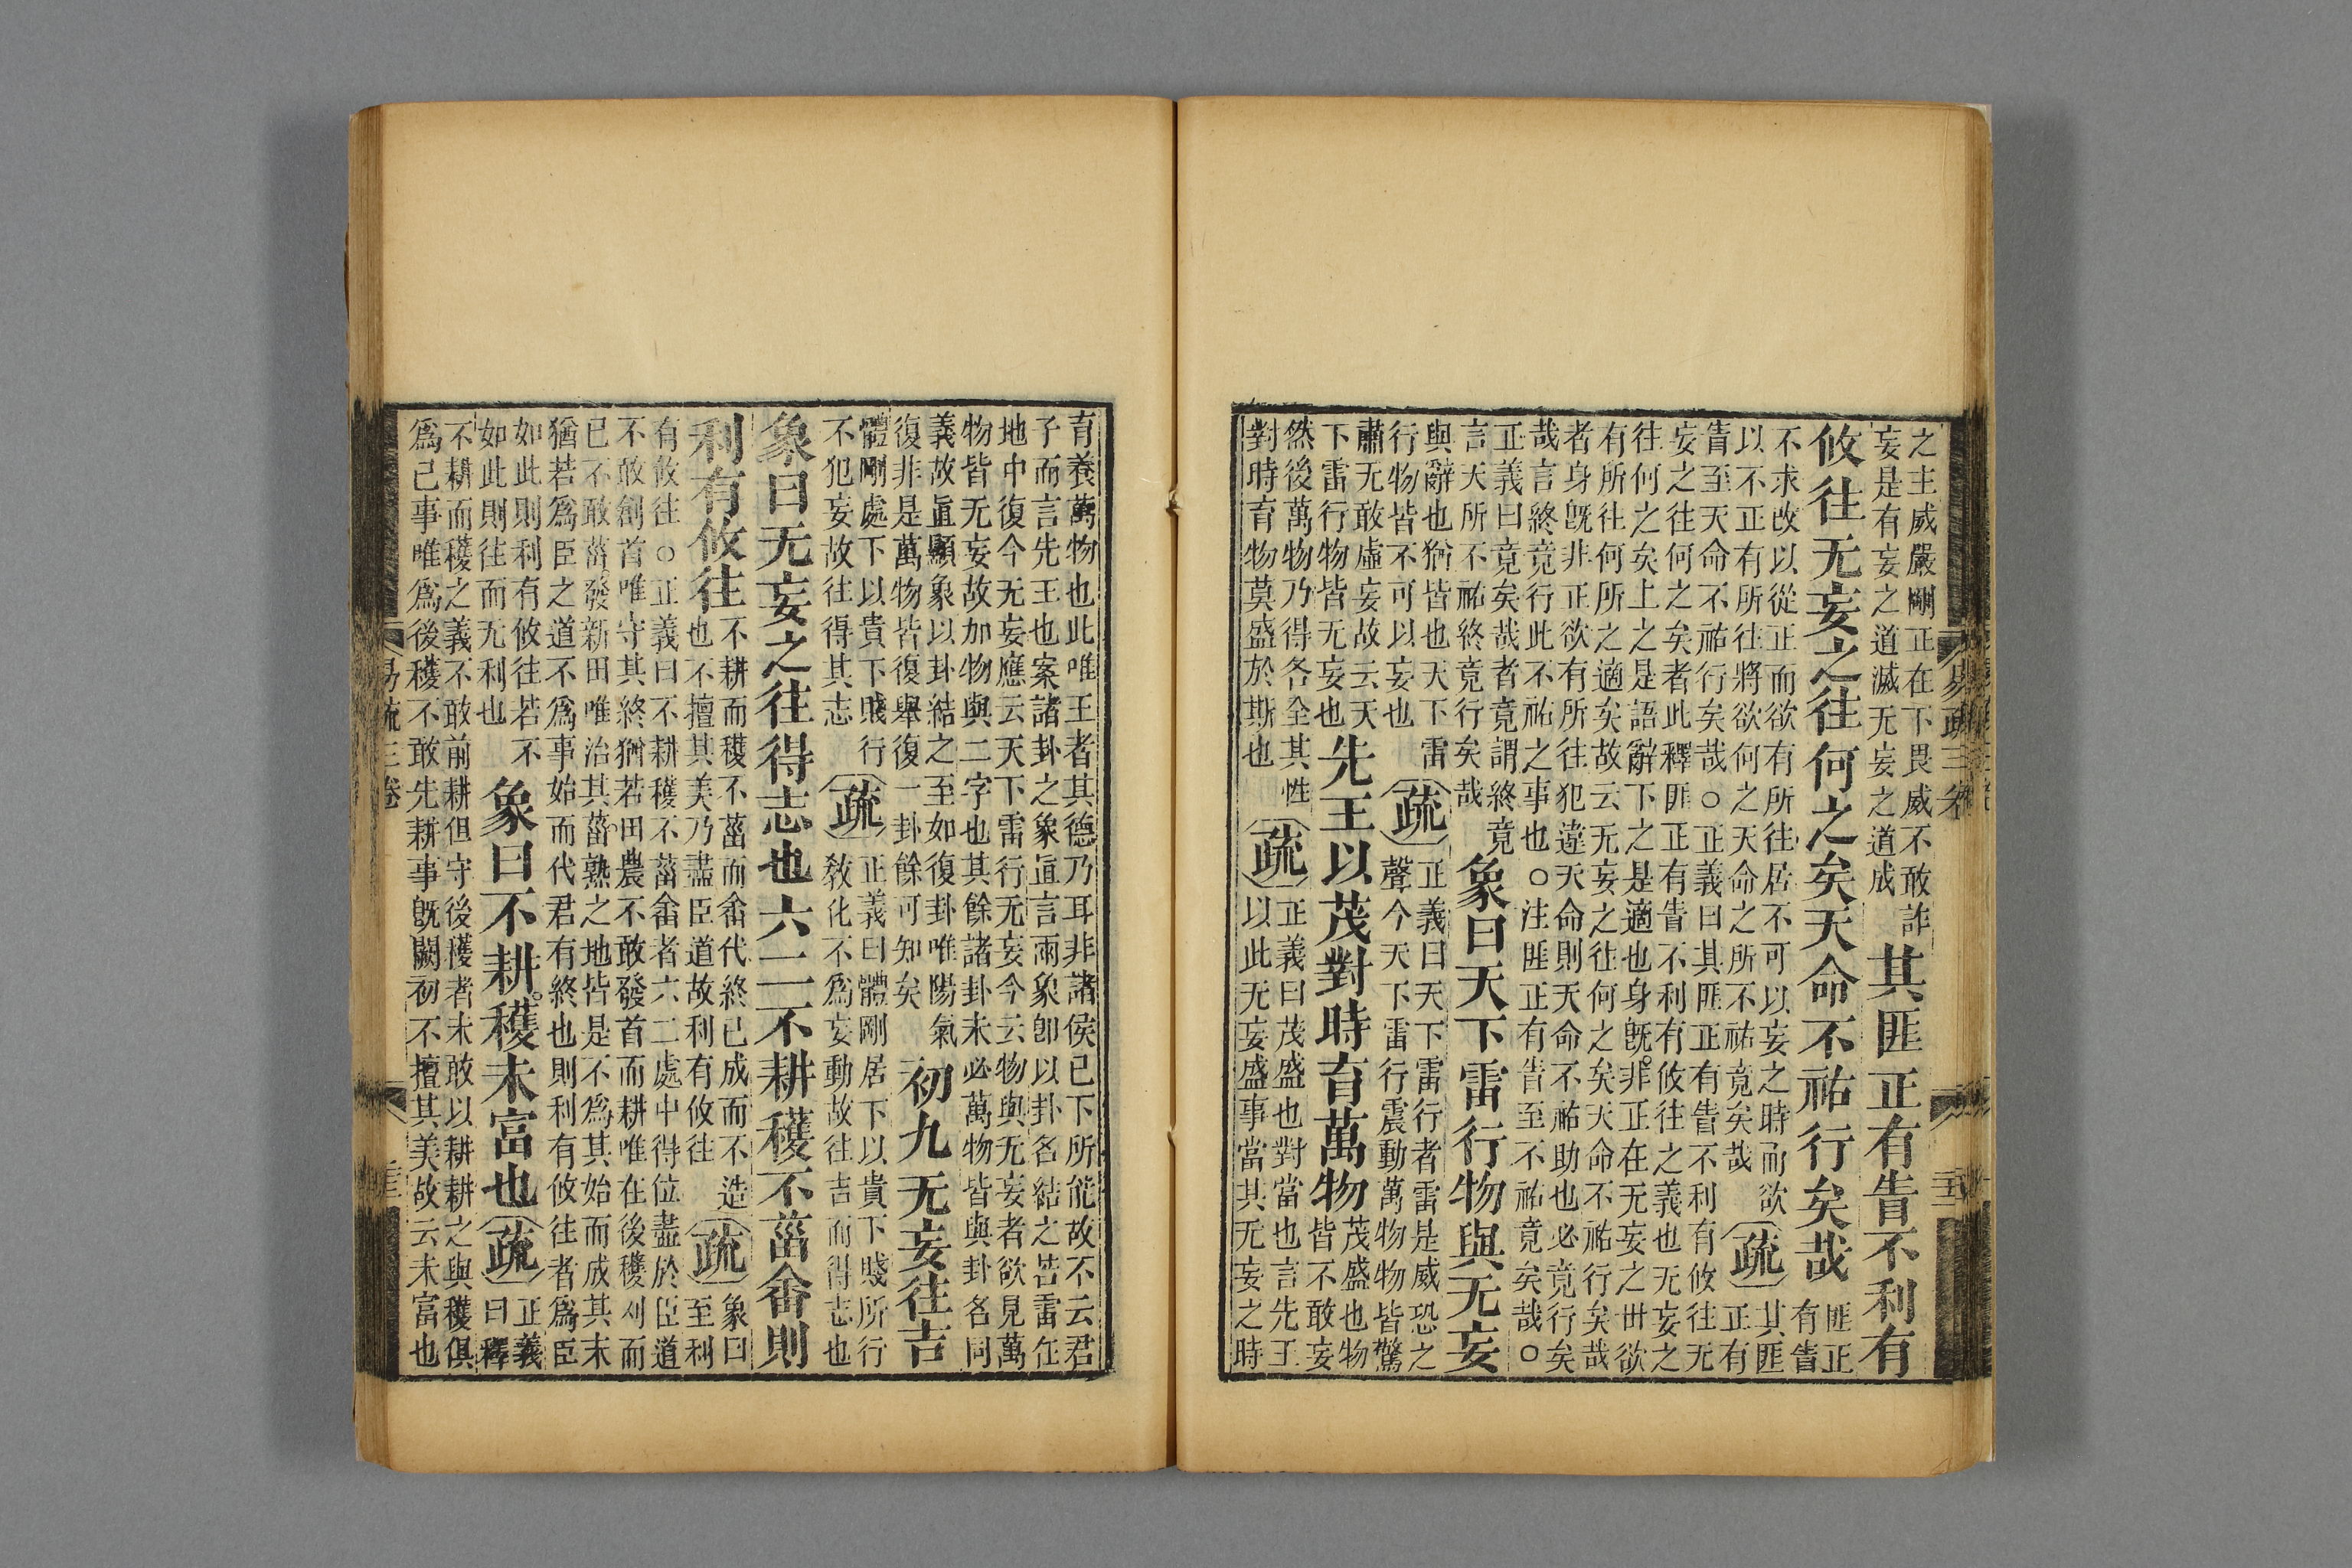 之主威嚴剛正在下畏威不敢詐
妄是有妄之道滅无妄之道成
其匪正有眚不利有
攸往无妄之往何之矣天命不祐行矣哉
匪正
有眚
不求改以從正而欲有所往居不可以妄之時而欲
以不正有所往將欲何之天命之所不祐竟矣哉
疏
其匪
正有
眚至天命不祐行矣哉○正義曰其匪正有眚不利有攸往无
妄之往何之矣者此釋匪正有眚不利有攸往之義也无妄之
往何之矣上之是語辭下之是適也身旣非正在无妄之世欲
有所往何所之適矣故云无妄之往何之矣天命不祐行矣哉
者身旣非正欲有所往犯違天命則天命不祐助也必竟行矣
哉言終竟行此不祐之事也○注匪正有眚至不祐竟矣哉○
正義曰竟矣哉者竟謂終竟
言天所不祐終竟行矣哉
象曰天下雷行物與无妄
與辭也猶皆也天下雷
行物皆不可以妄也
疏
正義曰天下雷行者雷是威恐之
聲今天下雷行震動萬物物皆驚
肅无敢虛妄故云天
下雷行物皆无妄也
先王以茂對時育萬物
茂盛也物
皆不敢妄
然後萬物乃得各全其性
對時育物莫盛於斯也
疏
正義曰茂盛也對當也言先王
以此无妄盛事當其无妄之時
育養萬物也此唯王者其德乃耳非諸侯已下所能故不云君
子而言先王也案諸卦之象直言兩象卽以卦名結之若雷在
地中復今无妄應云天下雷行无妄今云物與无妄者欲見萬
物皆无妄故加物與二字也其餘諸卦未必萬物皆與卦名同
義故直顯象以卦結之至如復卦唯陽氣
復非是萬物皆復舉復一卦餘可知矣
初九无妄往吉
體剛處下以貴下賤行
不犯妄故往得其志
疏
正義曰體剛居下以貴下賤所行
敎化不爲妄動故往吉而得志也
象曰无妄之往得志也六二不耕穫不菑畬則
利有攸往
不耕而穫不菑而畬代終已成而不造
也不擅其美乃盡臣道故利有攸往
疏
象曰
至利
有攸往○正義曰不耕穫不菑畬者六二處中得位盡於臣道
不敢創首唯守其終猶若田農不敢發首而耕唯在後穫刈而
已不敢菑發新田唯治其菑熟之地皆是不爲其始而成其末
猶若爲臣之道不爲事始而代君有終也則利有攸往者爲臣
如此則利有攸往若不
如此則往而无利也
象曰不耕穫未富也
疏
正義
曰釋
不耕而穫之義不敢前耕但守後穫者未敢以耕耕之與穫俱
爲已事唯爲後穫不敢先耕事旣闕初不擅其美故云未富也
易疏三卷